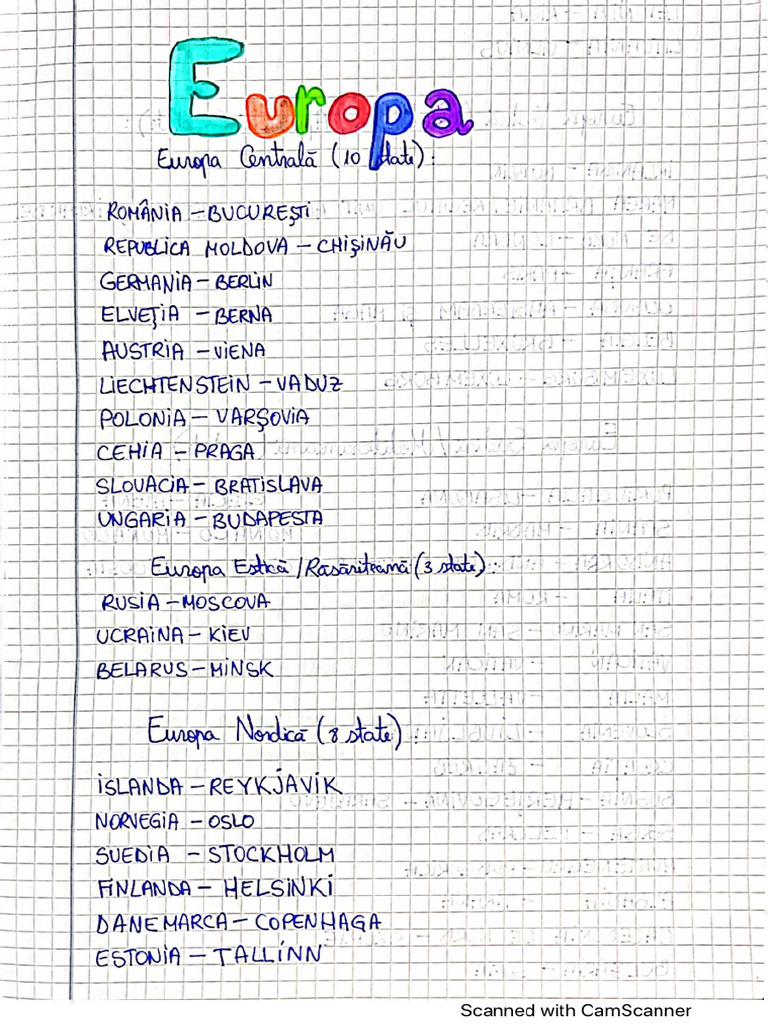 Europa
Europa Centrală (10 state):
ROMÂNIA – BUCUREȘTI
REPUBLICA MOLDOVA – CHIȘINĂU
GERMANIA – BERLIN
ELVEȚIA – BERNA
AUSTRIA – VIENA
LIECHTENSTEIN – VADUZ
POLONIA – VARȘOVIA
CEHIA – PRAGA
SLOVACIA – BRATISLAVA
UNGARIA – BUDAPESTA
Europa Estică / Răsăriteană (3 state):
RUSIA – MOSCOVA
UCRAINA – KIEV
BELARUS – MINSK
Europa Nordică (8 state):
ISLANDA – REYKJAVIK
NORVEGIA – OSLO
SUEDIA – STOCKHOLM
FINLANDA – HELSINKI
DANEMARCA – COPENHAGA
ESTONIA – TALLINN
Scanned with CamScanner